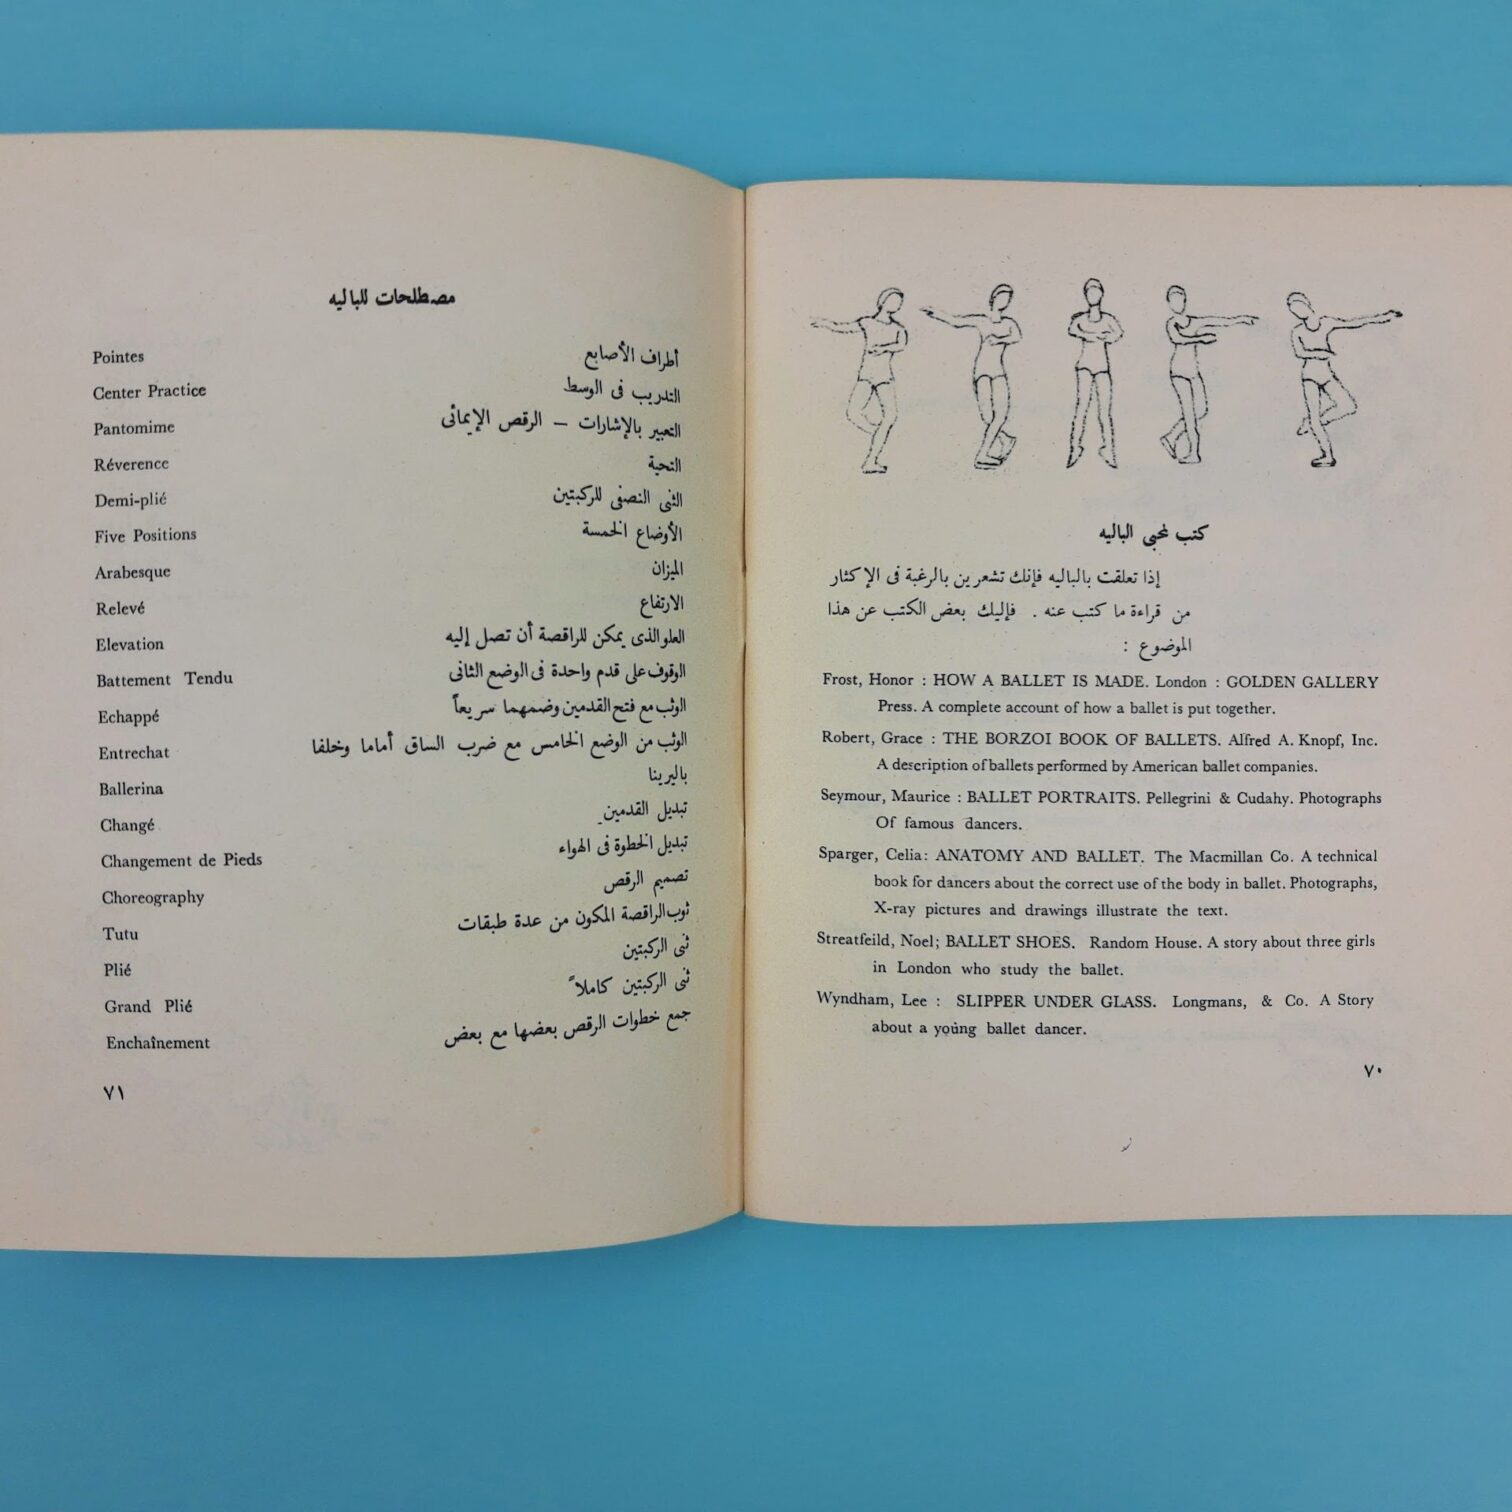 كتب لمحبى الباليه
إذا تعلقت بالباليه فإنك تشعرين بالرغبة فى الإكثار
من قراءة ما كتب عنه . فإليك بعض الكتب عن هذا
الموضوع :
Frost, Honor : HOW A BALLET IS MADE. London : GOLDEN GALLERY
Press. A complete account of how a ballet is put together.
Robert, Grace : THE BORZOI BOOK OF BALLETS. Alfred A. Knopf, Inc.
A description of ballets performed by American ballet companies.
Seymour, Maurice : BALLET PORTRAITS. Pellegrini & Cudahy. Photographs
Of famous dancers.
Sparger, Celia: ANATOMY AND BALLET. The Macmillan Co. A technical
book for dancers about the correct use of the body in ballet. Photographs,
X-ray pictures and drawings illustrate the text.
Streatfeild, Noel; BALLET SHOES. Random House. A story about three girls
in London who study the ballet.
Wyndham, Lee : SLIPPER UNDER GLASS. Longmans, & Co. A Story
about a young ballet dancer.
٧٠
مصطلحات للباليه
Pointes أطراف الأصابع
Center Practice التدريب فى الوسط
Pantomime التعبير بالإشارات – الرقص الإيمائى
Réverence التحية
Demi-plié الثنى النصفى للركبتين
Five Positions الأوضاع الخمسة
Arabesque الميزان
Relevé الارتفاع
Elevation العلو الذى يمكن للراقصة أن تصل إليه
Battement Tendu الوقوف على قدم واحدة فى الوضع الثانى
Echappé الوثب مع فتح القدمين وضمهما سريعاً
Entrechat الوثب من الوضع الخامس مع ضرب الساق أماما وخلفا
Ballerina باليرينا
Changé تبديل القدمين
Changement de Pieds تبديل الخطوة فى الهواء
Choreography تصميم الرقص
Tutu ثوب الراقصة المكون من عدة طبقات
Plié ثنى الركبتين
Grand Plié ثنى الركبتين كاملاً
Enchaînement جمع خطوات الرقص بعضها مع بعض
٧١